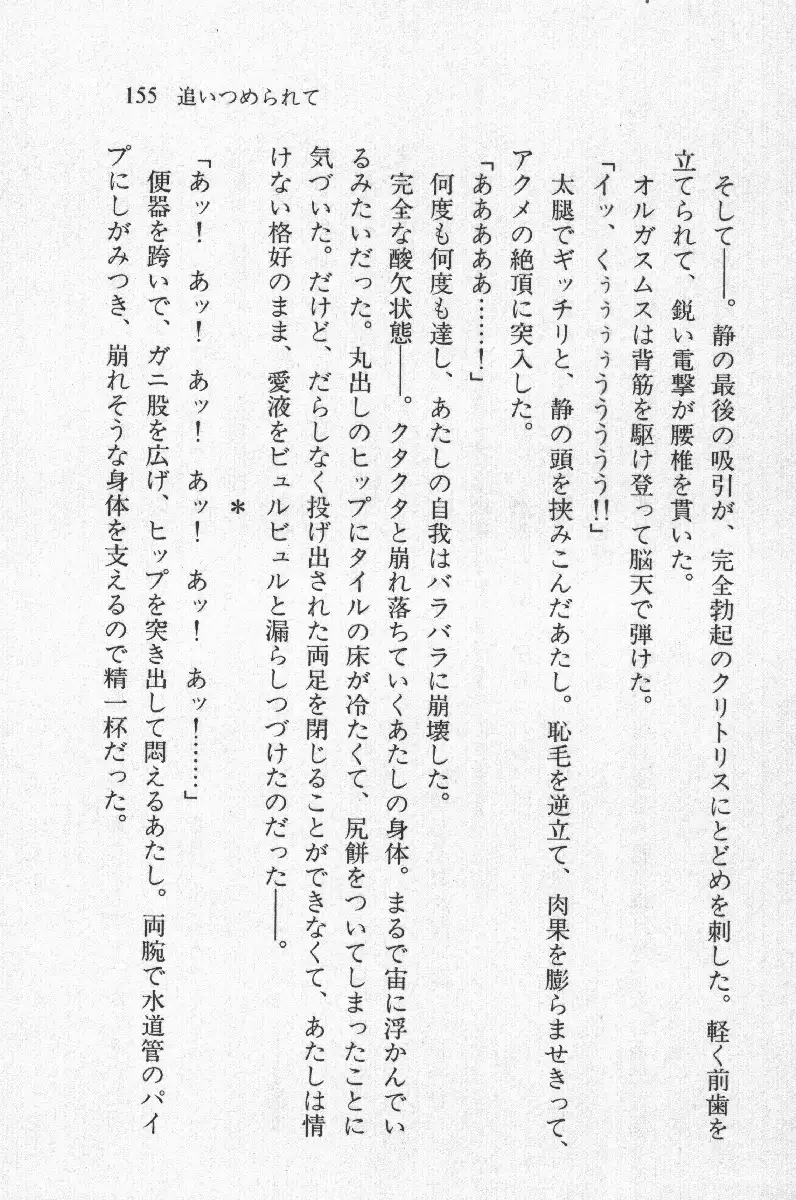 155　追いつめられて
　そして——。静の最後の吸引が、完全勃起のクリトリスにとどめを刺した。軽く前歯を
立てられて、鋭い電撃が腰椎を貫いた。
　オルガスムスは背筋を駆け登って脳天で弾けた。
「イッ、くぅぅぅぅうううう!!」
　太腿でギッチリと、静の頭を挟みこんだあたし。恥毛を逆立て、肉果を膨らませきって、
アクメの絶頂に突入した。
「あああああ……！」
　何度も何度も達し、あたしの自我はバラバラに崩壊した。
　完全な酸欠状態——。クタクタと崩れ落ちていくあたしの身体。まるで宙に浮かんでい
るみたいだった。丸出しのヒップにタイルの床が冷たくて、尻餅をついてしまったことに
気づいた。だけど、だらしなく投げ出された両足を閉じることができなくて、あたしは情
けない格好のまま、愛液をビュルビュルと漏らしつづけたのだった——。
＊
「あッ！　あッ！　あッ！　あッ！　あッ！　あッ！……」
　便器を跨いで、ガニ股を広げ、ヒップを突き出して悶えるあたし。両腕で水道管のパイ
プにしがみつき、崩れそうな身体を支えるので精一杯だった。